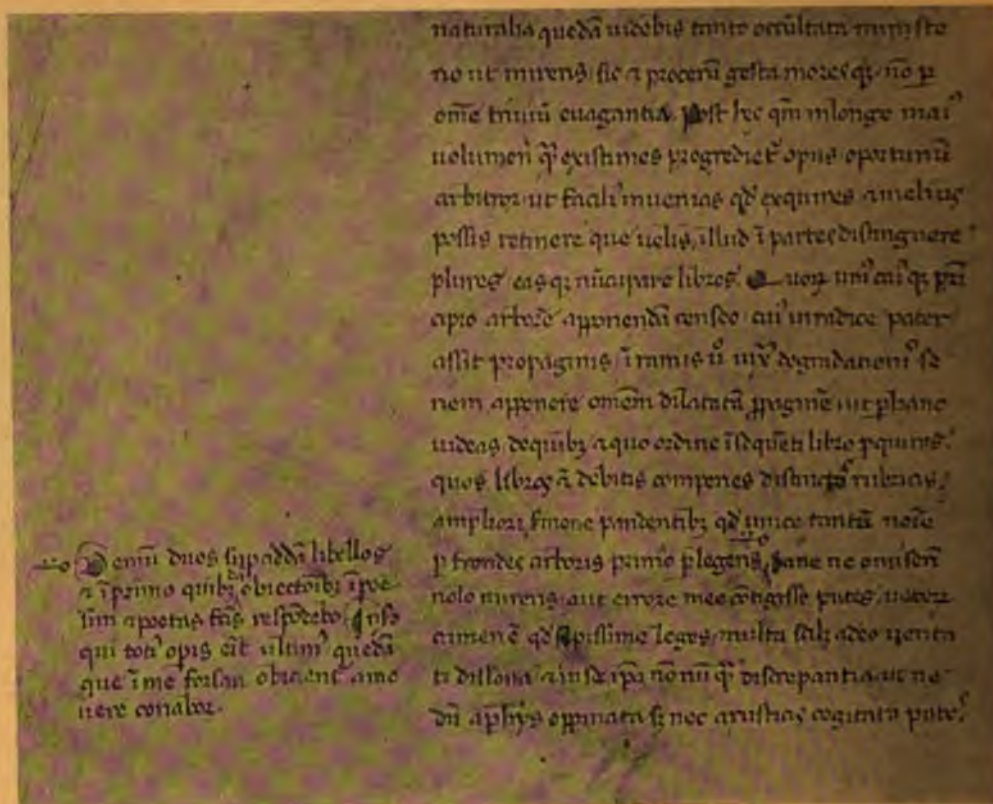 naturalia quedã uidebis tanto occultata miniſte
rio ut mireris ſic ⁊ procerũ geſta moresqꝫ nõ ꝑ
om̃e triuiũ euagantia. poſt hec qm̃ inlonge mai᷒
uolumen q̃ᷓ exiſtimes progrediet᷑ opus oportunũ
arbitror ut facili᷒ inuenias qd̓ exquires ⁊ melius
poſſis retinere que uelis, illud ĩ partes diſtinguere
plures eaſqꝫ nũcupare libros. Quoꝝ uni᷒cui᷒qꝫ pri
cipio arborẽ apponendã cenſeo cui᷒ inradice pater
aſſit propaginis ĩ ramis ů iux̃ degradationis ſe
riem apponere omẽm dilatatã ꝓpaginẽ ut ꝑhanc
uideas dequibꝫ ⁊ quo ordine ĩſequẽti libro ꝑquiris.
quos libros ã debitis comperies diſtinctos rubricis
ampliori ſmone pandentibꝫ qd̓ unico tantũ noĩe
ꝑ frondes arboris primo ꝑlegeris, ſane ne omiſeri
nolo mireris aut errore meo cõtigiſſe putes, ueteꝝ
crimen ẽ qd̓ ſepiſſime leges multa ſcilꝫ adeo uerita
ti diſſona ⁊ inſe ip̃a nõ nũ q̃ᷓ diſcrepantia ut ne
dũ aphỹs oppinata ſꝫ nec aruſticis cogitata putes
Demũ duos ſuꝑaddã libellos
⁊ ĩprimo quibꝫdã obiectõibꝫ ĩpoe
ſim ⁊ poetas fc̃is reſpõdebo. Inſo
qui toti᷒ oꝑis erit ultim᷒ quedã
que ĩme forſan obicient᷑ amo
uere conabor.